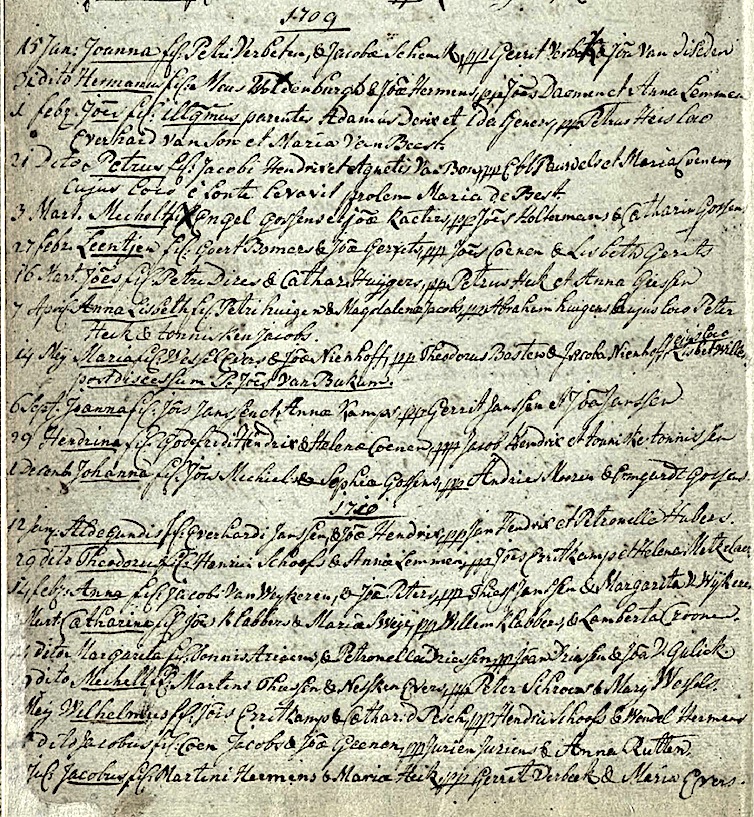 1709
15 Jan: Joanna fil: Petri Verbeten, & Jacobæ Schenk, pp Gerrit Verbeek & Joa Van Dilsden
dito Hermanus filiæ & Joæ Hermens, pp: Joes Daemen et Anna Lemmen
1 feb: Joes fil: Illegmus parentes Adamus Derix et Ida Geners, pp Petrus Heis loco
Everhard van Son et Maria Van Beest
21 Dito Petrus fil: Jacobi Hendrix et Agnetis Van Bon, pp et Maria Coenen
Cujus loco e fonte levavit prolem Maria de Best
3 Mart. Mechelt fil: Engel Gossens et Joæ Kaeters, pp Joes Holtermans & Catharin Gossens
27 febr: Leentjen fil: Goert Bomers & Joæ Gerrits, pp Joes Coenen & Lisbeth Gerrits
16 Mart Joes fil: Petri Dircs & Cathar: Huijgens, pp Petrus Hek et Anna Geissen
7 April Anna Lisbeth fil: Petri huigen & Magdalena Jacobs, pp Abraham huigens & cujus loco Peter
Heik & tonnisken Jacobs.
14 Meij Maria fil: Wessel Evers & Joæ Nienhoff, pp Theodorus Basten & Jacoba Nienhoff ejus loco Lisbet Willems
post discessum P. Jois Van Bukum.
6 Sept: Joanna fil: Jois Janssen et Annæ Kamps, pp Gerrit Janssen et Joa Janssen
29 Hendrina fil: Godefridi Hendrix & Helenæ Coenen, ppp Jacob Hendrix et tonniske tonnissen
1 Decemb Johanna fil: Jois Mechiels & Sophiæ Gossens, pp Andries & Gossens
1710
12 jan: Aldegundis fil: everhardi Janssen, & Joæ Hendrix, pp Jan Hendrix et Petronella Hubers.
29 dito Theodorus fil: Henrici Schoofs & Annæ Lemmen, pp Joes Erritkamp et Helena
14 feb: Anna fil: Jacobi Van Wykeren, & Joæ Peters, pp Thies Janssen & Margarita V Wykeren
Mart Catharina fil: Jois Klabbers & Maria pp Willem Klabbers & Lamberta Croone.
dito Margarita fil: Tonnis Ariaens & Petronella Driessen, pp Joan Driessen & Joa V Gulick
dito Mechelt fil: Martens Thiesen & Nesken Evers, pp Peter Schroers & Mary Wessels.
Mey Wilhelmus fil: Jois Erritkamp & Cathar: d Pesch, pp Hendric Schoofs & Wendel Hermens
dito Jacobus fil: Coen Jacobs & Joæ Geenen, pp Jurien Juriens & Anna Rutten.
Jul: Jacobus fil: Martini Hermens & Maria Heik, pp Gerret Verbeek & Maria Evers.